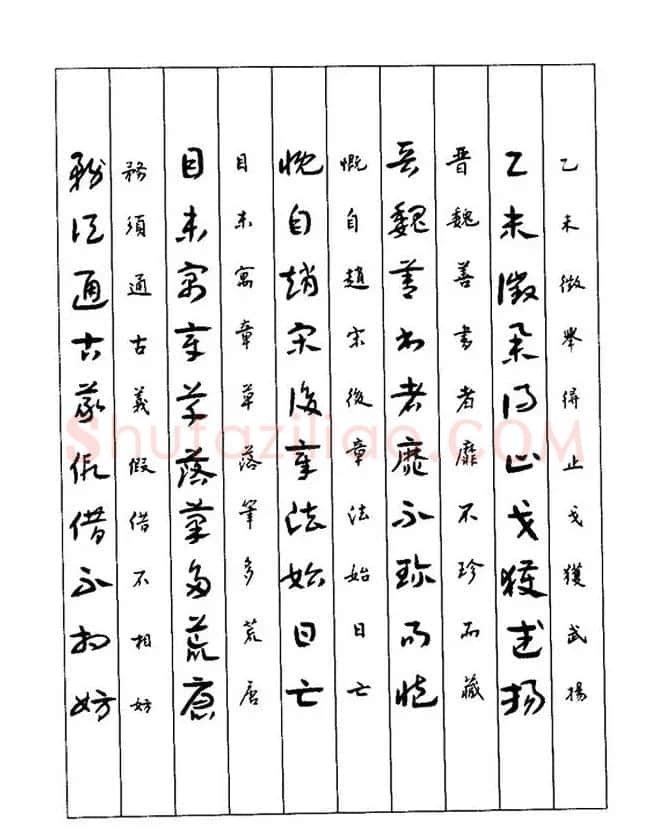 乙未徵舉得止戈獲武揚
乙未徵舉得止戈獲武揚
晉魏善書者靡不珍而藏
晉魏善書者靡不珍而藏
慨自趙宋後章法始日亡
慨自趙宋後章法始日亡
目未寓章草落筆多荒唐
目未寓章草落筆多荒唐
務須通古義假借不相妨
務須通古義假借不相妨
Shufaziliao.COM